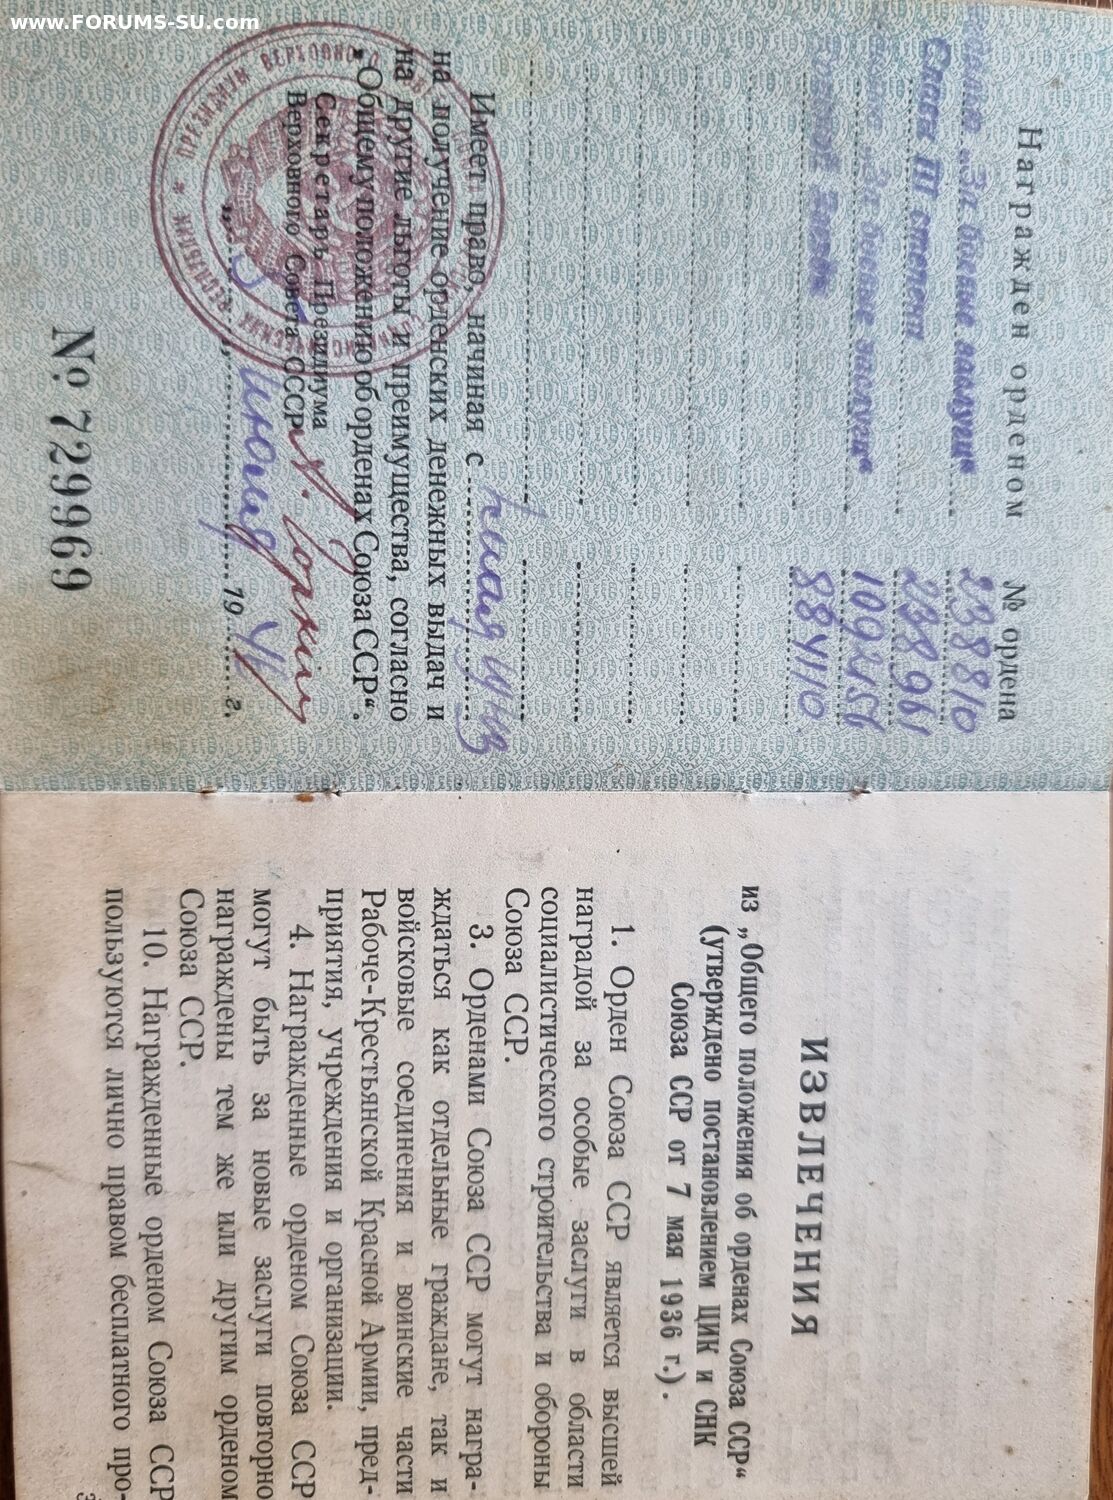 www.FORUMS-SU.com
Награжден орденом № ордена
„За боевые заслуги“ 23.8810
Славы III степени 238961
„За боевые заслуги“ 1092456
884110
Имеет право, начиная с
на получение орденских денежных выдач и
на другие льготы и преимущества, согласно
„Общему положению об орденах Союза ССР“.
Секретарь Президиума
Верховного Совета СССР
июля 19 г.
№ 729969
ИЗВЛЕЧЕНИЯ
из „Общего положения об орденах Союза ССР“
(утверждено постановлением ЦИК и СНК
Союза ССР от 7 мая 1936 г.).
1. Орден Союза ССР является высшей
наградой за особые заслуги в области
социалистического строительства и обороны
Союза ССР.
3. Орденами Союза ССР могут награ-
ждаться как отдельные граждане, так и
войсковые соединения и воинские части
Рабоче-Крестьянской Красной Армии, пред-
приятия, учреждения и организации.
4. Награжденные орденом Союза ССР
могут быть за новые заслуги повторно
награждены тем же или другим орденом
Союза ССР.
10. Награжденные орденом Союза ССР
пользуются лично правом бесплатного про-
3